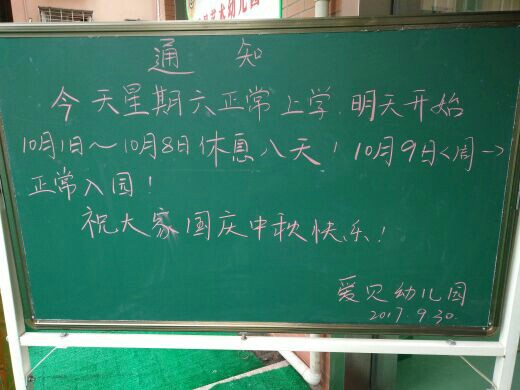 艺术幼儿园
通 知
今天星期六正常上学 明天开始
10月1日～10月8日休息八天！10月9日<周一>
正常入园！
祝大家国庆中秋快乐！
爱贝幼儿园
2017.9.30.